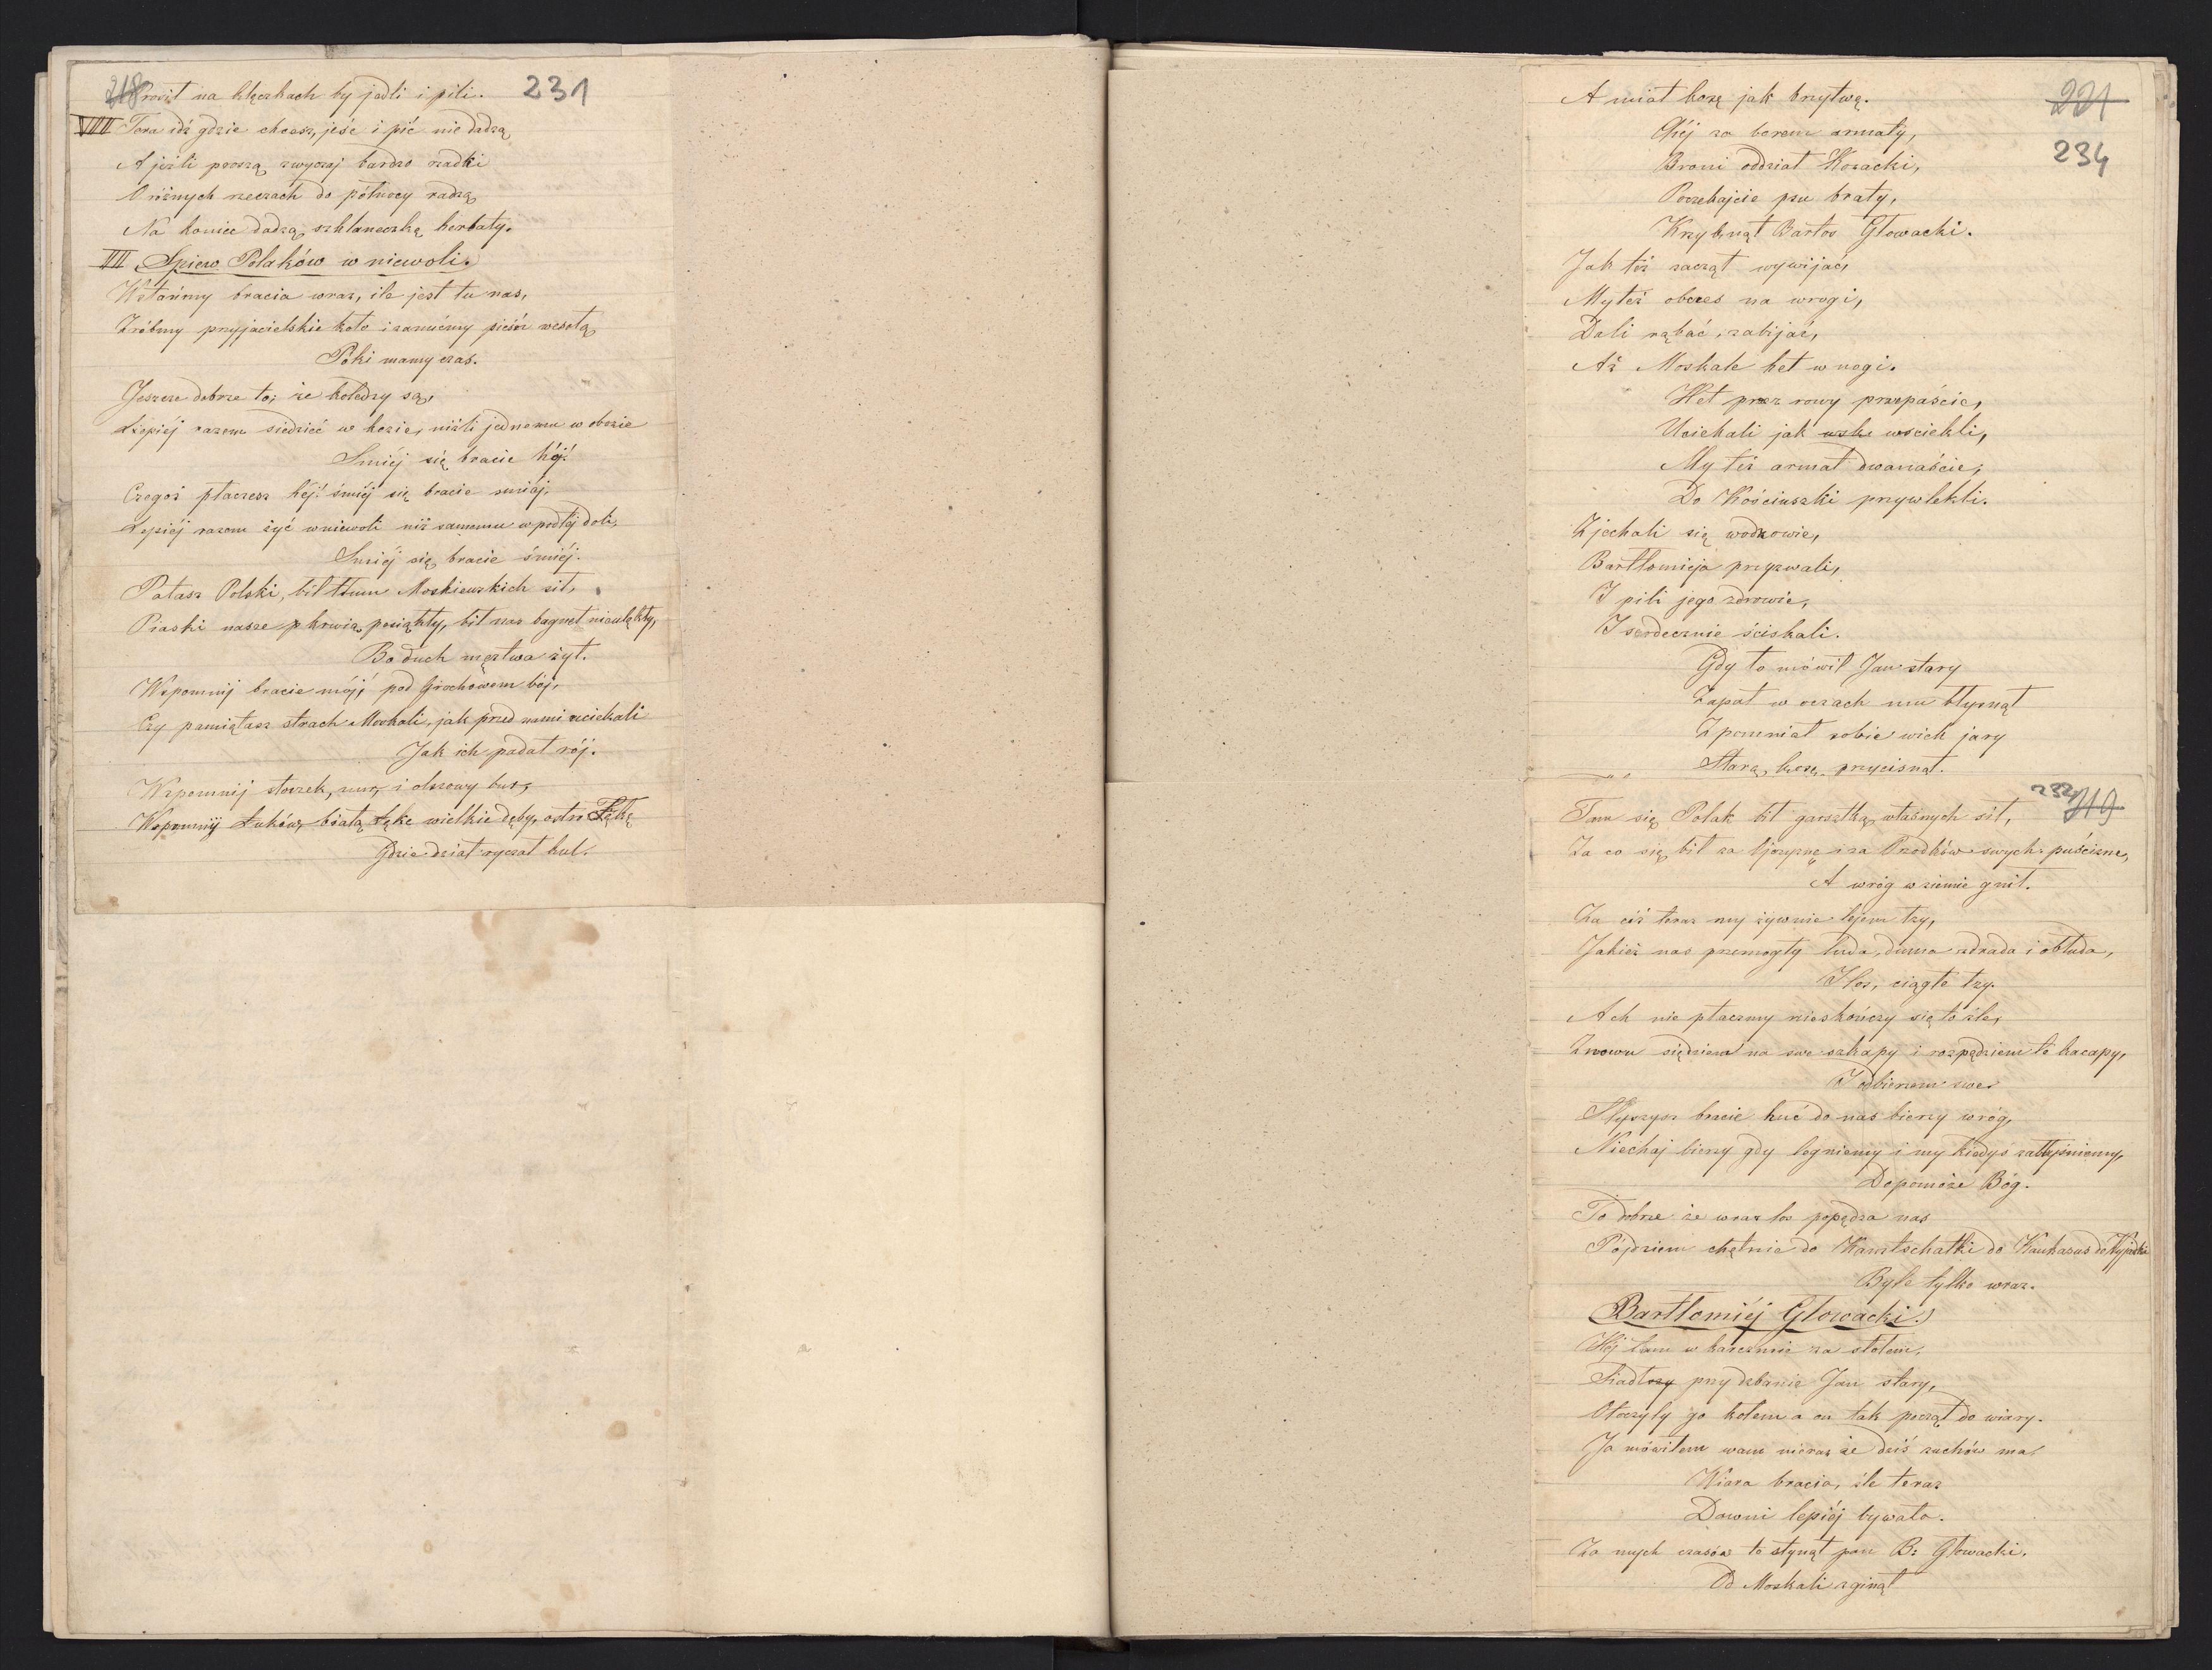 218 231
Prosit na klęczkach by jedli i pili.
VIII Tera idź gdzie chcesz, jeść i pić nie dadzą
A jeźli proszą zwyczaj bardzo rzadki
O różnych rzeczach do północy radzą
Na koniec dadzą szklaneczkę herbaty.
III Spiew Polaków w niewoli.
Wstańmy bracia wraz, ile jest tu nas,
Zróbmy przyjacielskie koło i zanućmy pieśń wesołą
Poki mamy czas.
Jeszcze dobrze to, że koledzy są,
Lepiéj razem siedzieć w kozie, niźli jednemu w obozie
Smiéj się bracie héj!
Czegoż płaczesz héj! śmiéj się bracie smiéj,
Lepiéj razem żyć w niewoli niż samemu w podłéj doli,
Smiéj się bracie śmiéj.
Pałasz Polski, bił tłum Moskiewskich sił,
Piaski nasze krwią posiąkły, bił nas bagnet nieulękły,
Bo duch męztwa żył.
Wspomnij bracie mój, pod Grochowem bój,
Czy pamiętasz strach Moskali, jak przed nami uciekali
Jak ich padał rój.
Wspomnij stoczek, mur, i olszowy bur,
Wspomnij Łuków, białą łękę wielkie dęby, ostro Łękę
Gdzie dział ryczał hul.
A miał kosę jak brzytwę.
221
234
Ohéj za borem armaty,
Broni oddział Kozacki,
Poczekajcie psu braty,
Krzyknął Bartos Głowacki.
Jak téż zaczął wywijać,
My też obces na wrogi,
Dali rąbać, zabijać,
Aż Moskale het w nogi.
Het przez rowy przepaście,
Uciekali jak wsciekli,
My téż armat dwanaście,
Do Kościuszki przywlekli.
Zjechali się wodzowie,
Bartłomieja przyzwali,
I pili jego zdrowie,
I serdecznie ściskali.
Gdy to mówił Jan stary
Zapał w oczach mu błysnął
Z pomniał sobie wiek jary
Starą kosę przycisnął.
232 219
Tam się Polak bił garsztką własnych sił,
Za co się bił za Ojczyznę i za Przodków swych puściznę,
A wróg w ziemie gnił.
Za ciż teraz my żywnie lejem łzy,
Jakież nas przemogły luda, duma zdrada i obłuda,
I los, ciągłe łzy.
Ach nie płaczmy nieskończy się to źle,
Znowu siędziem na swe szkapy i rozpędziem te kacapy,
I odbierzem swe.
Słyszysz bracie huć do nas bierzy wróg,
Niechaj bierzy gdy legniemy i my kiedyś zabłyśniemy,
Dopomoże Bóg.
To dobrze że wraz los popędza nas
Pójdziem chętnie do Kamtschatki do Kaukazus do
Byle tylko wraz.
Bartłomiéj Głowacki.
Héj tam w karczmie za stołem,
Siadłszy przy dzbanie Jan stary,
Otoczyły go kołem a on tak począł do wiary.
Ja mówiłem wam nieraz że dziś zuchów mał
Wiara bracia, źle teraz
Dawni lepiéj bywało.
Za mych czasów to słynął pan B: Głowacki.
Od Moskali zginął